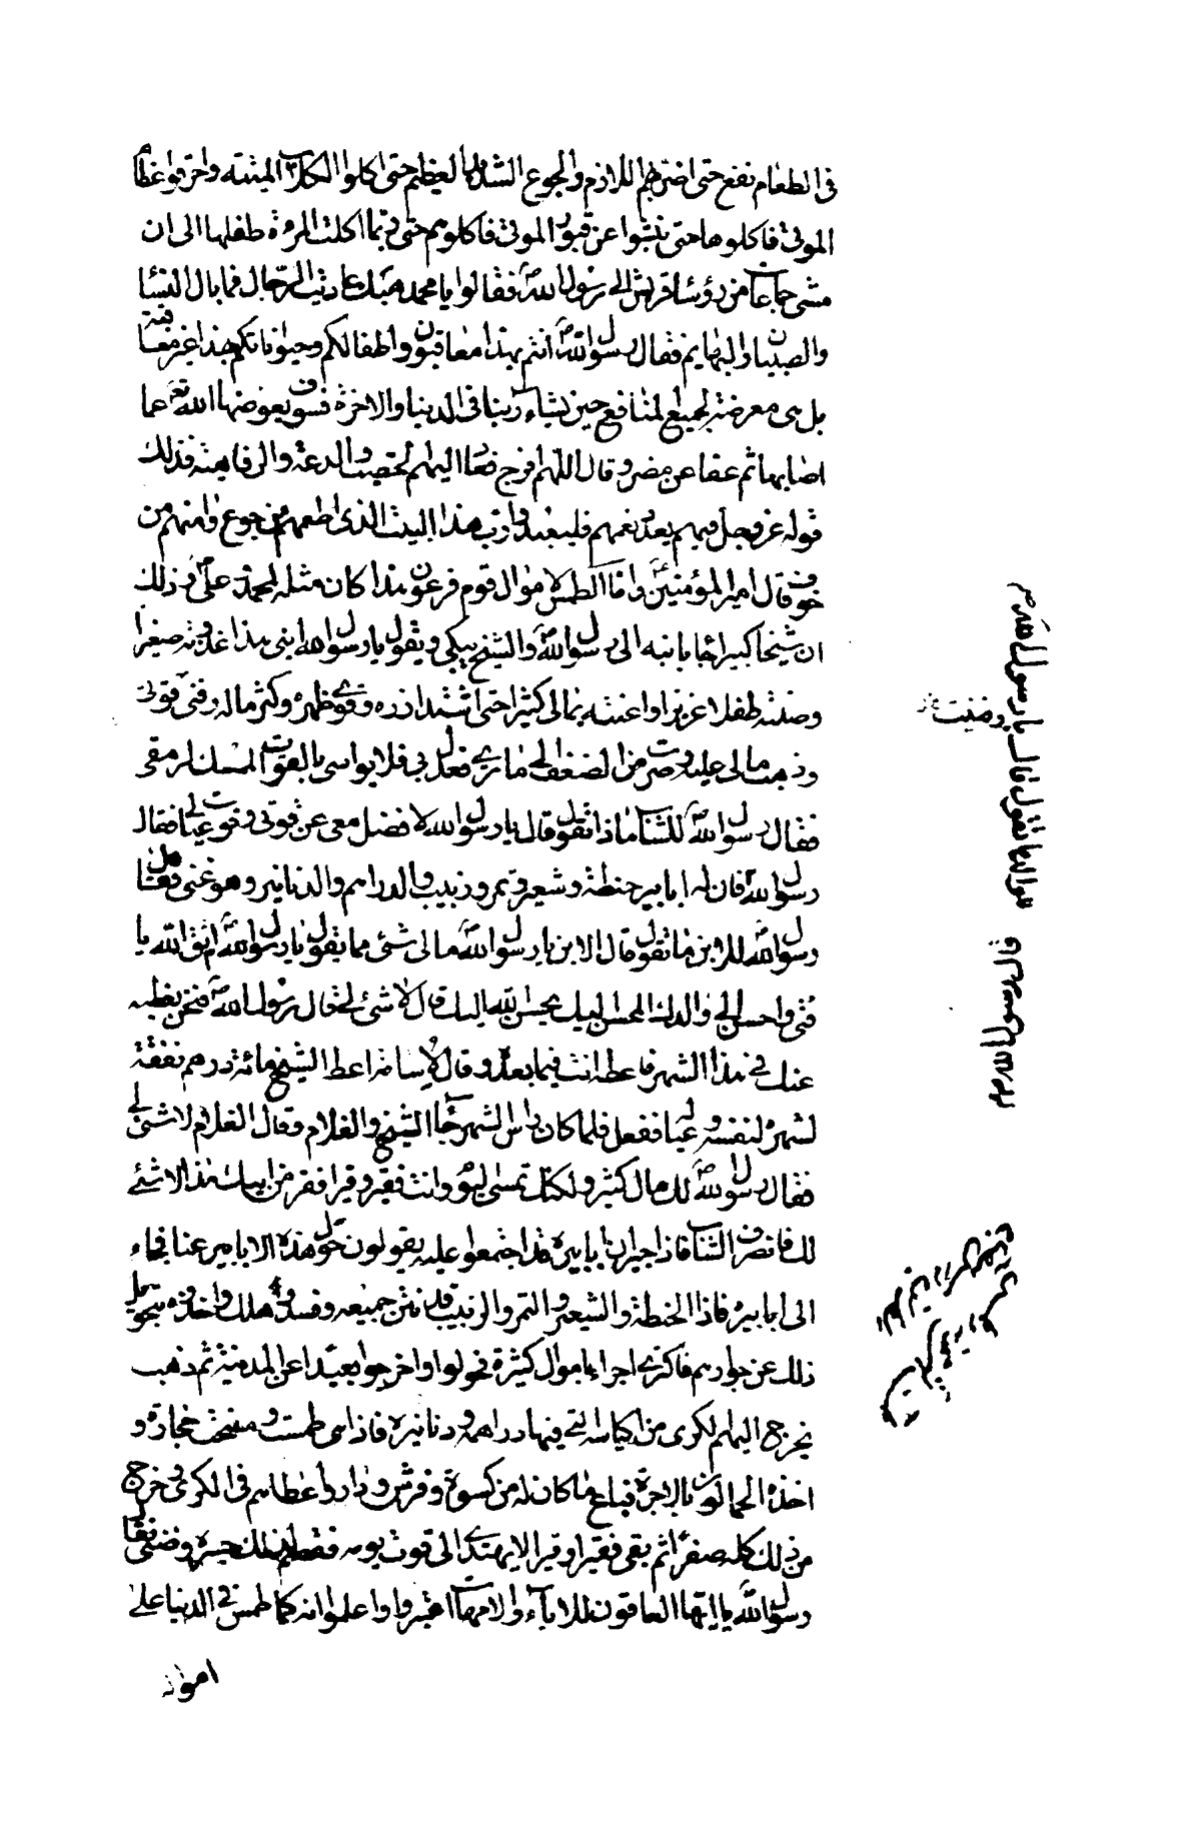 فى الطعام نفع حتى اضر بهم اللازم والجوع الشديد العظيم حتى اكلوا الكلاب الميتته واحرقوا عظام
الموتى فاكلوها حتى نبشوا عن قبور الموتى فاكلوهم حتى ربما اكلت المرءة طفلها الى ان
مشى جماعا من رؤساء قريش الى رسول الله ص فقالوا يا محمد هبك عاديت الرجال فما بال النساء
والصبيان والبهايم فقال رسول الله ص انتم بهذا معاقبون واطفالكم وحيواناتكم بهذا غير معاقبة
بل هى معرضة لجميع المنافع حين يشاء ربنا فى الدنيا والاخرة فسوف يعوضها الله تع عما
اصابها ثم عفا عن مضر وقال اللهم افرج فعاد اليهم الخصب والدعة والرفاهية فذلك
قوله عز وجل فيهم يعدد نعمهم فليعبدوا رب هذا البيت الذى اطعمهم من جوع وامنهم من
خوف قال امير المؤمنين ع واما الطمس لاموال قوم فرعون فقد كان مثله لمحمد ص وعلى ع وذلك
ان شيخا كبيرا جاء بابنه الى رسول الله ص والشيخ يبكى ويقول يا رسول الله ابنى هذا غذوته صغيرا
وصنته طفلا عزيزا واعنته بمالى كثيرا حتى اشتد ازره وقوى ظهره وكثر ماله وفنى قوتى
وذهب مالى عليه وصرت من الضعف الى ما ترى فعل بى فلا يواسى بالقوت الممسك لرمقى
فقال رسول الله ص للشاب ماذا تقول قال يا رسول الله لا فضل معى عن قوتى وقوت عيالى فقال
رسول الله ص فان له ابابير حنطة وشعير وتمر وزبيب والدراهم والدنانير وهو غنى فقال
رسول الله ص للابن ما تقول قال الابن يا رسول الله ص مالى شئ مما يقول يا رسول الله ص اتق الله يا
فتى واحسن الى والدك المحسن اليك يحسن الله اليك قال لا شئ لى قال رسول الله ص فنحن نعطيه
عنك فى هذا الشهر فاعطه انت فيما بعد وقال لاسامة اعط الشيخ مائة درهم نفقة
لشهره لنفسه وعياله ففعل فلما كان راس الشهر جاء الشيخ والغلام وقال الغلام لا شئ لى
فقال رسول الله ص لك مال كثير ولكنك تمسى اليوم وانت فقير وقير افقر من ابيك هذا لا شئ
لك فانصرف الشاب فاذا جيران ابابيره قد اجتمعوا عليه يقولون حول هذه الابابير عنا فجاء
الى ابابيره فاذا الحنطة والشعير والتمر والزبيب قد نتن جميعه وفسد وهلك واخذوه بتحويل
ذلك عن جوارهم فاكترى اجراء باموال كثيرة فحولوا واخرجوا بعيدا عن المدينة ثم ذهب
يخرج اليهم الكرى من اكياسه التى فيها دراهمه ودنانيره فاذا هى طمست ومسخت حجارة و
اخذه الحمالون بالاجرة فباع ما كان له من كسوة وفرش ودار واعطاهم فى الكرى وخرج
من ذلك كله صفرا ثم بقى فقيرا وقيرا لا يهتدى الى قوت يومه فسقم لذلك جسده وضنى فقال
رسول الله ص يا ايها العاقون للاباء والامهات اعتبروا واعلموا انه كما طمس فى الدنيا على
امواله
وضنيت